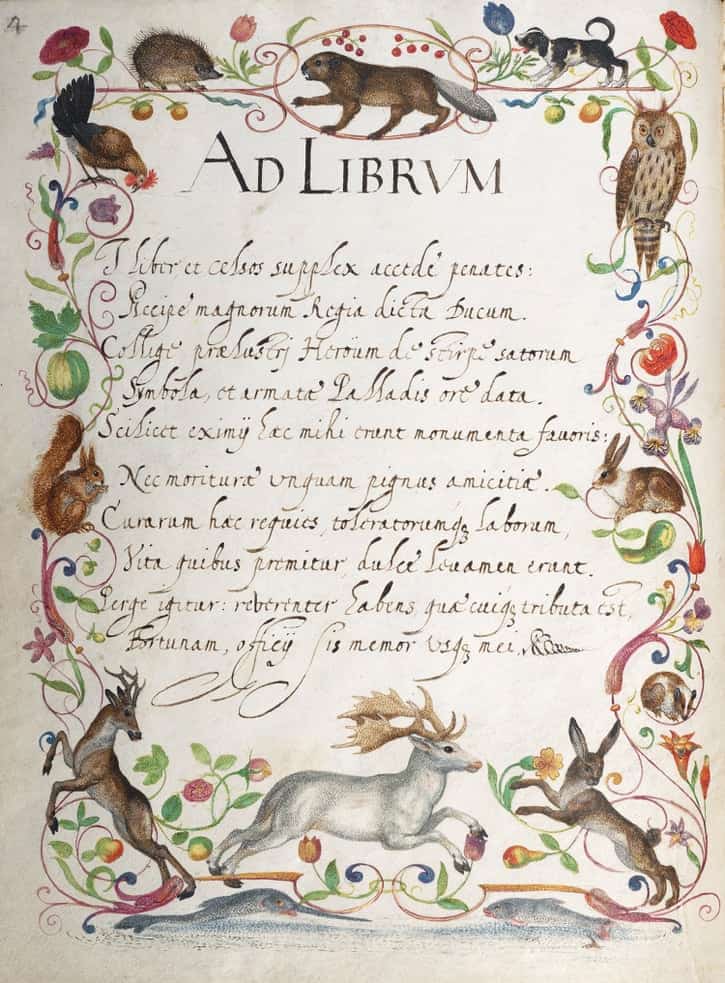 4
AD LIBRVM
I liber, et celsos supplex accede penates:
Accipe magnorum Regia dicta Ducum.
Collige prælustrj Heröum de stirpe satorum
Symbola, et armatæ Palladis ore data.
Scilicet eximij hæc mihi erunt monumenta fauoris:
Nec morituræ vnquam pignus amicitiæ.
Curarum hæc requies, toleratorumq; laborum,
Vita quibus premitur, dulce leuamen erunt.
Perge igitur: reuerenter habens, quæ cuiq; tributa est,
Fortunam, officij sis memor vsq; mei.